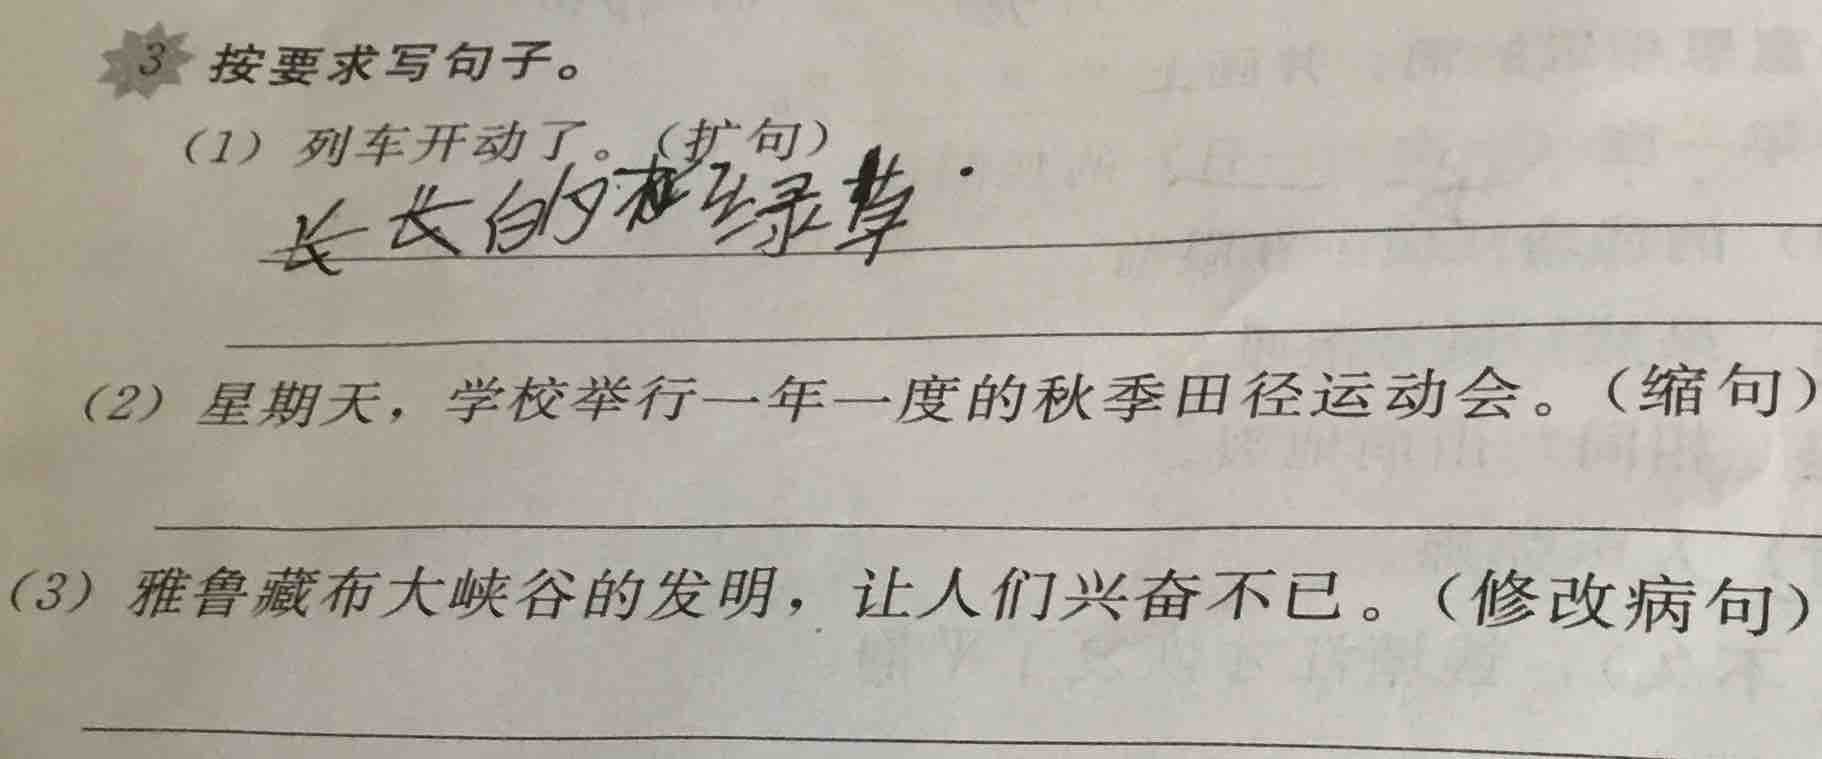 3 按要求写句子。
（1）列车开动了。（扩句）
长长的
绿草
（2）星期天，学校举行一年一度的秋季田径运动会。（缩句）
（3）雅鲁藏布大峡谷的发明，让人们兴奋不已。（修改病句）